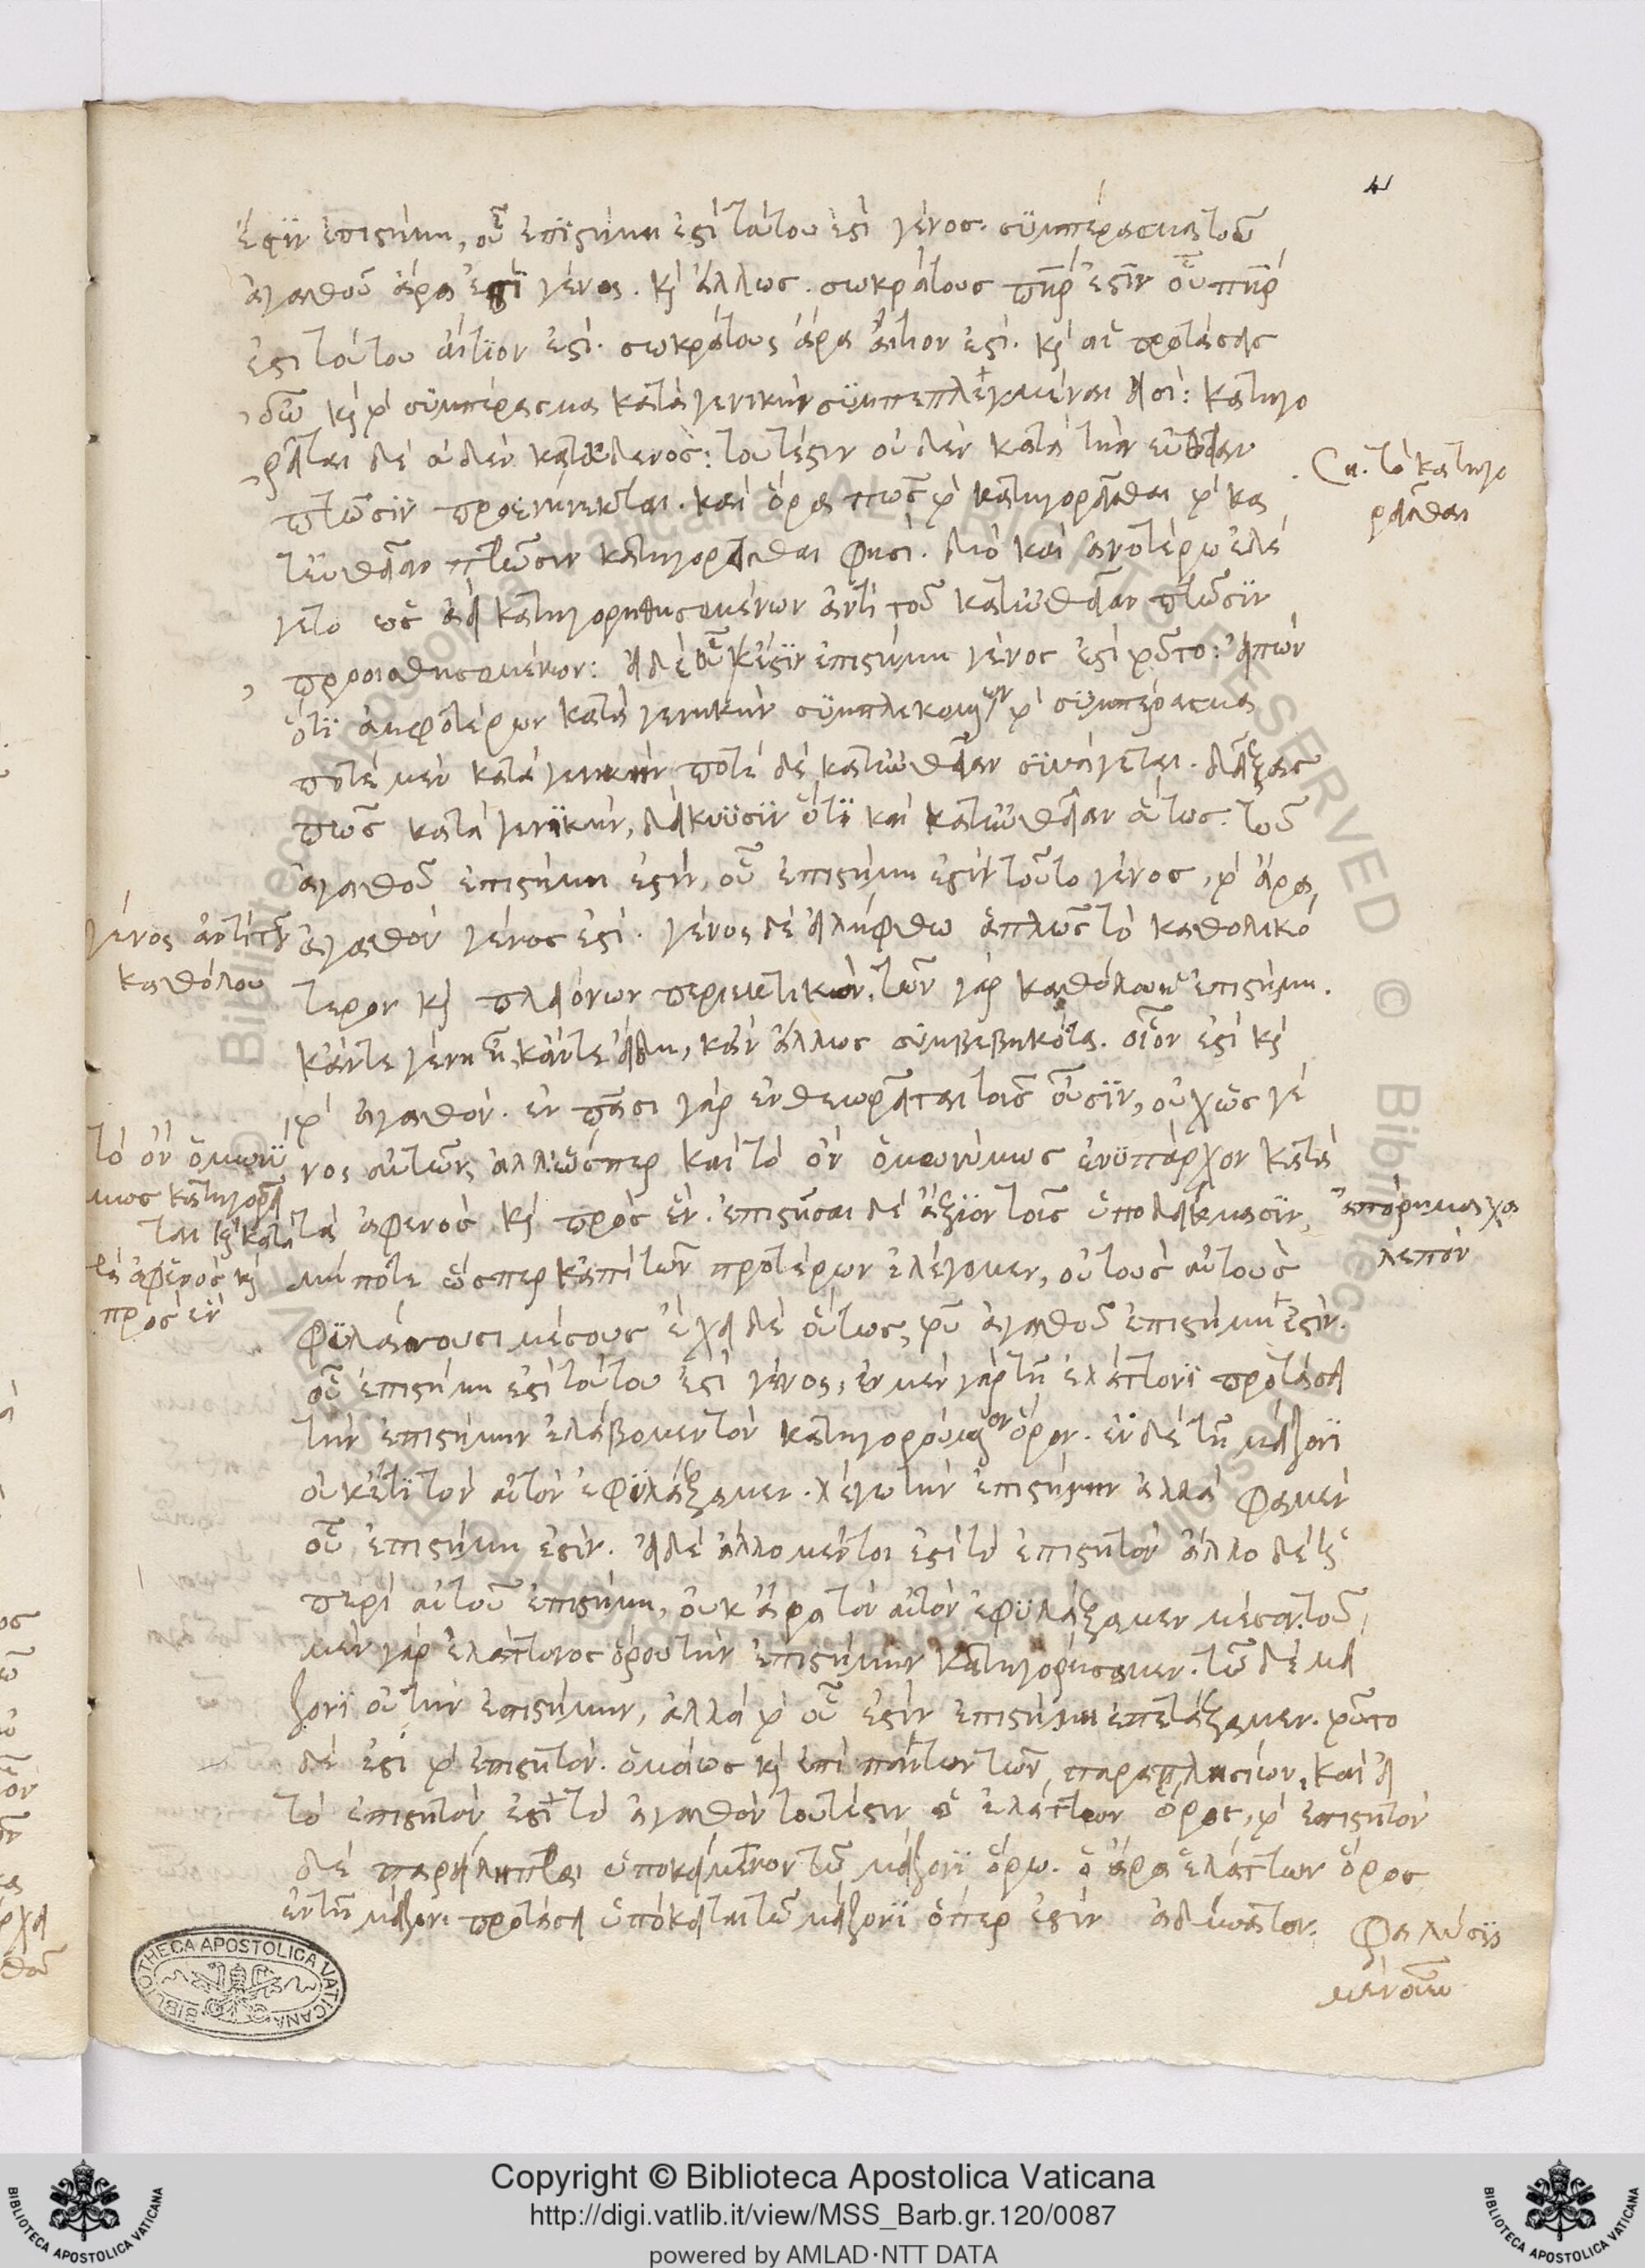 ἐστὶν ἐπιστήμη, οὗ ἐπιστήμη ἐστὶ τούτου ἐστὶ γένος. συμπέρασμα τοῦ
ἀγαθοῦ ἄρα ἐστὶ γένος. καὶ ἄλλως. σωκράτους πηρ ἐστὶν οὗ πηρ
ἐστι τούτου αἴτιον ἐστί. σωκράτους ἄρα αἴτιον ἐστί. καὶ αἱ προτάσεις
καὶ τὸ συμπέρασμα κατὰ γενικὴν συμπεπλεγμέναι εἰσί: κατηγο
ρεῖται δὲ οὐδὲν κατ' οὐδενός: τουτέστιν οὐδὲν κατὰ τὴν εὐθεῖαν
πτῶσιν προενήνεκται. καὶ ὅρα πῶς τὸ κατηγορεῖσθαι τὸ κα
τ' εὐθεῖαν πτῶσιν κατηγορεῖσθαι φησί. διὸ καὶ ἀνοτέρω ἐλέ
γετο ὡς ἀεὶ κατηγορηθησομένων ἀντὶ τοῦ κατ' εὐθεῖαν πτῶσιν
προοισθησομένων: εἰ δὲ οὗ ἐστὶν ἐπιστήμη γένος ἐστὶ τοῦτο: εἰπὼν
ὅτι ἀμφοτέρων κατὰ γενικὴν συμπλεκομένων τὸ συμπέρασμα
ποτὲ μὲν κατὰ γενικὴν ποτὲ δὲ κατ' εὐθεῖαν συνάγεται. δείξας
πῶς κατὰ γενικὴν, δείκνυσιν ὅτι καὶ κατ' εὐθεῖαν οὕτως. τοῦ
ἀγαθοῦ ἐπιστήμη ἐστὶν, οὗ ἐπιστήμη ἐστὶν τοῦτο γένος, τὸ ἄρα
ἀγαθὸν γένος ἐστί. γένος δὲ εἰλήφθω ἁπλῶς τὸ καθολικό
τερον καὶ πλειόνων περιεκτικόν. τῶν γὰρ καθόλου ἡ ἐπιστήμη.
κἄντε γένη κἄντε εἴδη, κἂν ἄλλως συμβεβηκότα. οἷον ἐστὶ καὶ
τὸ ἀγαθόν. ἐν πᾶσι γὰρ ἐνθεωρεῖται τοῖς οὖσιν, οὐχ ὡς γέ
νος αὐτῶν, ἀλλ' ὥσπερ καὶ τὸ ὂν ὁμωνύμως ἐνυπάρχον κατὰ
τὰ ἀφενὸς καὶ πρὸς ἕν. ἐπιστῆσαι δὲ ἄξιον τοῖς ὑποδείγμασιν,
μήποτε ὥσπερ κἀπὶ τῶν προτέρων ἐλέγομεν, οὐ τοὺς αὐτοὺς
φυλάττουσι μέσους ἔχει δὲ οὕτως, τοῦ ἀγαθοῦ ἐπιστήμη ἐστίν.
οὗ ἐπιστήμη ἐστὶ τούτου ἐστὶ γένος, ἐν μὲν γὰρ τῇ ἐλάττονι προτάσει
τὴν ἐπιστήμην ἐλάβομεν τὸν κατηγορούμενον ὅρον. ἐν δὲ τῇ μείζονι
οὐκέτι τὸν αὐτὸν ἐφυλάξαμεν. λέγω τὴν ἐπιστήμην ἀλλὰ φαμὲν
οὗ ἐπιστήμη ἐστίν. εἰ δὲ ἄλλο μέντοι ἐστὶ τὸ ἐπιστητὸν ἄλλο δὲ ἡ
περὶ αὐτοῦ ἐπιστήμη, οὐκ ἄρα τὸν αὐτὸν ἐφυλάξαμεν μέσον. τοῦ
μὲν γὰρ ἐλάττονος ὅρου τὴν ἐπιστήμην κατηγορήσαμεν. τῷ δὲ μεί
ζονι οὐ τὴν ἐπιστήμην, ἀλλὰ τὸ οὗ ἐστὶν ἐπιστήμη ἐπετάξαμεν. τοῦτο
δὲ ἐστὶ τὸ ἐπιστητόν. ὁμοίως καὶ ἐπὶ πάντων τῶν παραπλησίων. καὶ εἰ
τὸ ἐπιστητὸν ἐστὶ τὸ ἀγαθὸν τουτέστιν ὁ ἐλάττων ὅρος, τὸ ἐπιστητὸν
δὲ παρείληπται ὑποκείμενον τῷ μείζονι ὅρῳ. ὁ ἄρα ἐλάττων ὅρος
ἐν τῇ μείζονι προτάσει ὑπόκειται τῷ μείζονι ὅπερ ἐστὶν ἀδύνατον.
τὸ κατηγο
ρεῖσθαι
γένος ἀντὶ τοῦ
καθόλου
τὸ ὂν ὁμωνύ
μως κατηγορεῖ
ται καὶ κατὰ
τὰ ἀφενὸς καὶ
πρὸς ἕν
ἀπόρημα χα
λεπόν
Copyright © Biblioteca Apostolica Vaticana
http://digi.vatlib.it/view/MSS_Barb.gr.120/0087
powered by AMLAD·NTT DATA